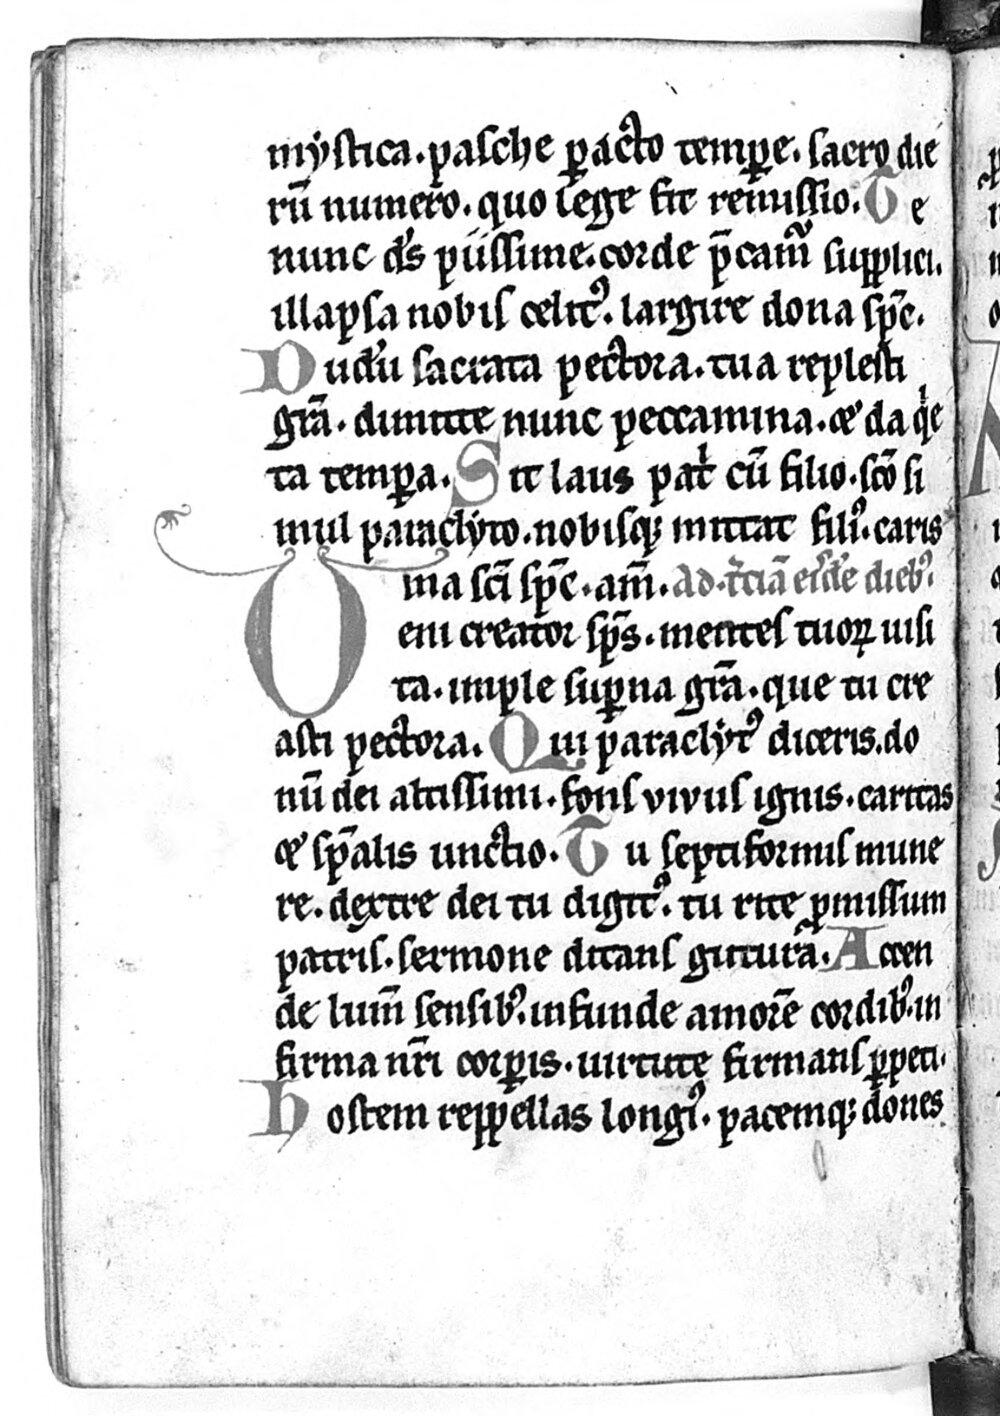 mẏstica · pasche ꝑacto temꝑe · sacro die
rū numero · quo lege fit remissio · Te
nunc ds̄ piissime · corde p̄camur supplici ·
illapsa nobis celitꝰ · largire dona spc̄ ·
Dudū sacrata pectora · tua replesti
grā · dimitte nunc peccamina · & da q̇e
ta temꝑa · Sit laus pat̄ cū filio · scō si
mul paraclẏto · nobisqꝫ mittat filiꝰ · caris
ma sci spc̄ · am̄ · Ad · t̄ciā eisdē diebꝰ ·
Veni creator sps̄ · mentes tuoꝝ uisi
ta · imple suꝑna grā · que tu cre
asti pectora · Qui paraclẏtꝰ diceris · do
nū dei altissimi · fons vivus ignis · caritas
& sp̄alis unctio · Tu septiformis mune
re · dextre dei tu digitꝰ · tu rite ꝓmissum
patris · sermone ditans guttura · Accen
de lum̄ sensibꝰ · infunde amorē cordibꝰ · in
firma nr̄i corꝑis · uirtute firmans ꝑpeti ·
Hostem reppellas longiꝰ · pacemqꝫ dones